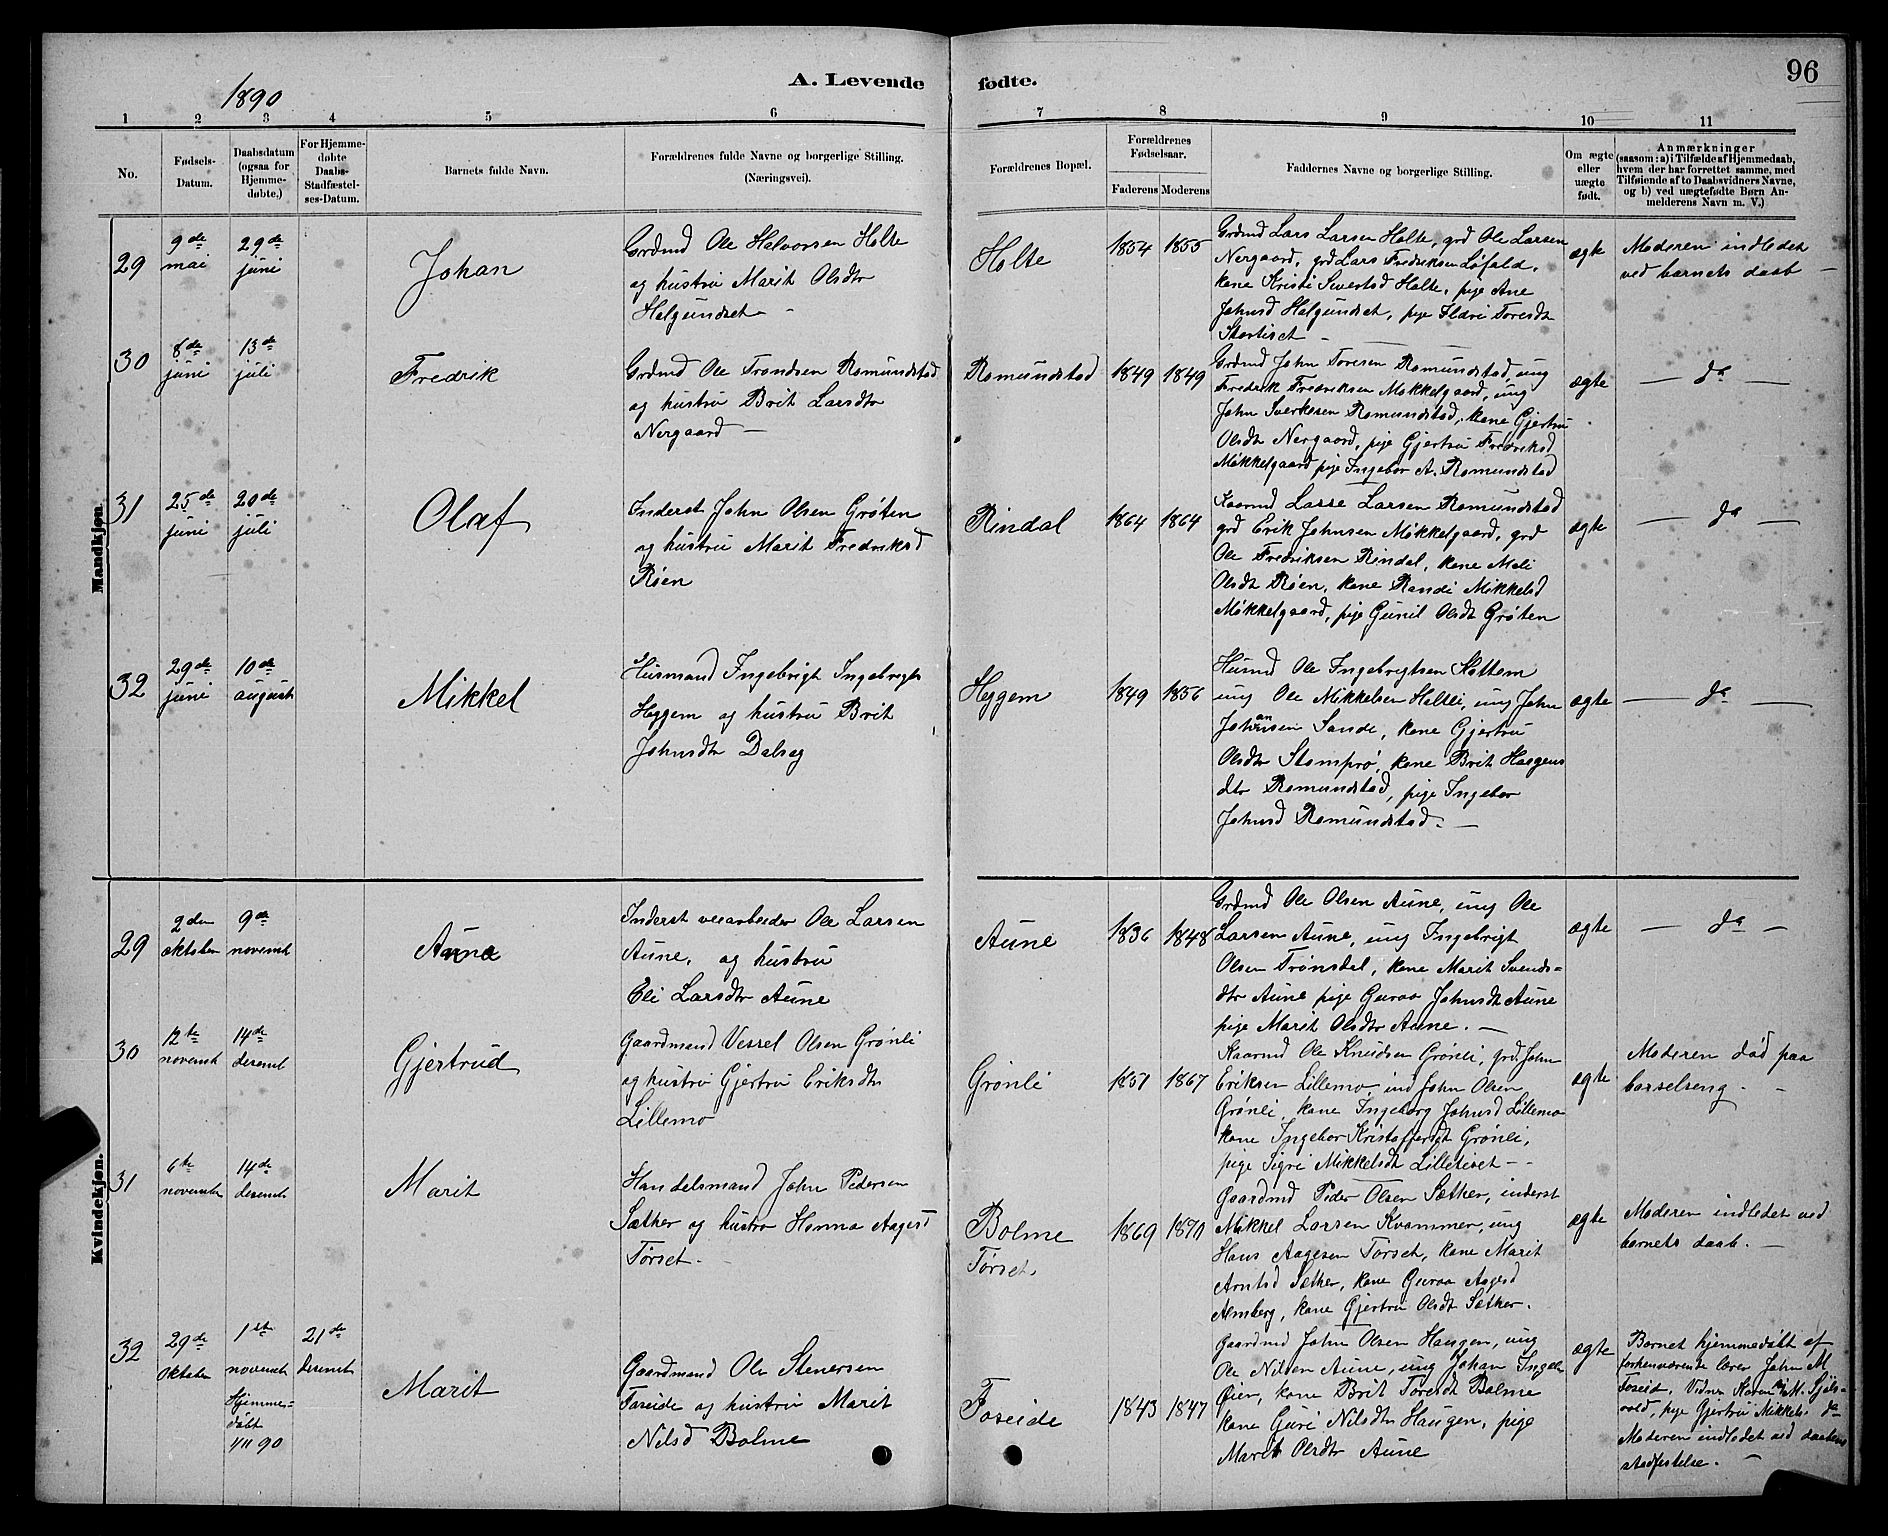 1890
A. Levende
fødte.
96
1 2 3 4 5 6 7 8 9 10 11
No.
Fødsels-
Datum.
Daabsdatum
(ogsaa for
Hjemme-
døbte.)
For Hjemme-
døbte
Daabs-
Stadfæstel-
ses-Datum.
Barnets fulde Navn.
Forældrenes fulde Navne og borgerlige Stilling.
(Næringsvei).
Forældrenes Bopæl.
Forældrenes
Fødselsaar.
Faderens Moderens
Faddernes Navne og borgerlige Stilling.
Om ægte
eller
uægte
født.
Anmærkninger
(saasom: a) i Tilfælde af Hjemmedaab,
hvem der har forrettet samme, med
Tilføiende af to Daabsvidners Navne,
og b) ved uægtefødte Børn An-
melderens Navn m. V.)
Mandkjøn.
29
9de
mai
29de
juni
Johan
Grdmd Ole Halvorsen Holte
og hustru Marit Olsdtr
Helgundset
Holte
1854 1855
Grdmd Lars Larsen Holte, grd Ole Larsen
Nergaard, grd Lars Fredriksen Løfald,
kone Kristi Sivertsd Holte, pige Ane
Johnsd Helgundset, pige Ildri Toresdt
Stortiset
ægte
Moderen indledet
ved barnets daab
30
8de
juni
13de
juli
Fredrik
Grdmd Ole Trondsen Romundstad
og hustru Brit Larsdtr
Nergaard
Romundstad
1849 1849
Grdmd John Toresen Romundstad, ung
Fredrik Fredriksen Møkkelgaard, ung
John Sverkesen Romundstad, kone Gjertru
Olsdt Nergaard, pige Gjertru Fredriksd
Møkkelgaard pige Ingebor A. Romundstad
ægte
da
31
25de
juni
20de
juli
Olaf
Inderst John Olsen Grøten
og hustru Marit Fredriksd
Røen
Rindal
1864 1864
Kaarmd Lasse Larsen Romundstad
grd Erik Johnsen Møkkelgaard, grd
Ole Fredriksen Rindal, kone Mali
Olsdt Røen, kone Randi Mikkelsd
Møkkelgaard, pige Gunil Olsdt Grøten
ægte
da
32
29de
juni
10de
august
Mikkel
Husmand Ingebrigt Ingebrigts
Heggem og hustru Brit
Johnsdtr Dalseg
Heggem
1849 1856
Husmd Ole Ingebrigtsen Kattem
ung Ole Mikkelsen Holtli, ung John
Johansen Sande, kone Gjertru
Olsdtr Stomprø, kone Brit Haagens
dtr Romundstad, pige Ingebor
Johnsd Romundstad.
ægte
da
Kvindekjøn.
29
2den
oktober
9de
novembr
Anne
Inderst veiarbeider Ole Larsen
Aune, og hustru
Eli Larsdtr Aune
Aune
1836 1848
Grdmd Ole Olsen Aune, ung Ole
Larsen Aune, ung Ingebrigt
Olsen Trønsdal, kone Marit Svends-
dtr Aune pige Guroa Johnsdt Aune
pige Marit Olsdtr Aune.
ægte
da
30
12te
novembr
14de
desembr
Gjertrud
Gaardmand Vessel Olsen Grønli
og hustru Gjertru Eriksdtr
Lillemo
Grønli
1851 1867
Kaarmd Ole Knudsen Grønli, grd. John
Eriksen Lillemo, ind John Olsen
Grønli, kone Ingeborg Johnsd Lillemo
kone Ingebor Kristoffersdt Grønli,
pige Sigri Mikkelsdt Lilletiset
ægte
Moderen død paa
barselseng.
31
6te
novembr
14de
desembr
Marit
Handelsmand John Pedersen
Sæther og hustru Hanna Aagesd
Tørset
Bolme
Tørset
1869 1870
Gaardmd Peder Olsen Sæther, inderst
Mikkel Larsen Kvammen, ung
Hans Aagesen Tørset, kone Marit
Arntsd Sæther, kone Guroa Aagesd
Almberg, kone Gjertru Olsdt Sæther.
ægte
Moderen indledet ved
barnets daab.
32
29de
oktober
1ste
novembr
Hjemme-
døbt
1/11 90
21de
desembr
Marit
Gaardmand Ole Stenersen
Foseide og hustru Marit
Nilsd Bolme
Foseide
1843 1847
Gaardmd John Olsen Haugen, ung
Ole Nilsen Aune, ung Johan Ingebr
Øien, kone Brit Toresdt Bolme
kone Guri Nilsdtr Haugen, pige
Marit Olsdtr Aune
ægte
Barnet hjemmedøbt af
forhenværende lærer John M
Foseid. Vidner Karen M. Sjøls-
vold, pige Gjertru Mikkels. da
Moderen indledet ved daabens
stadfestelse.